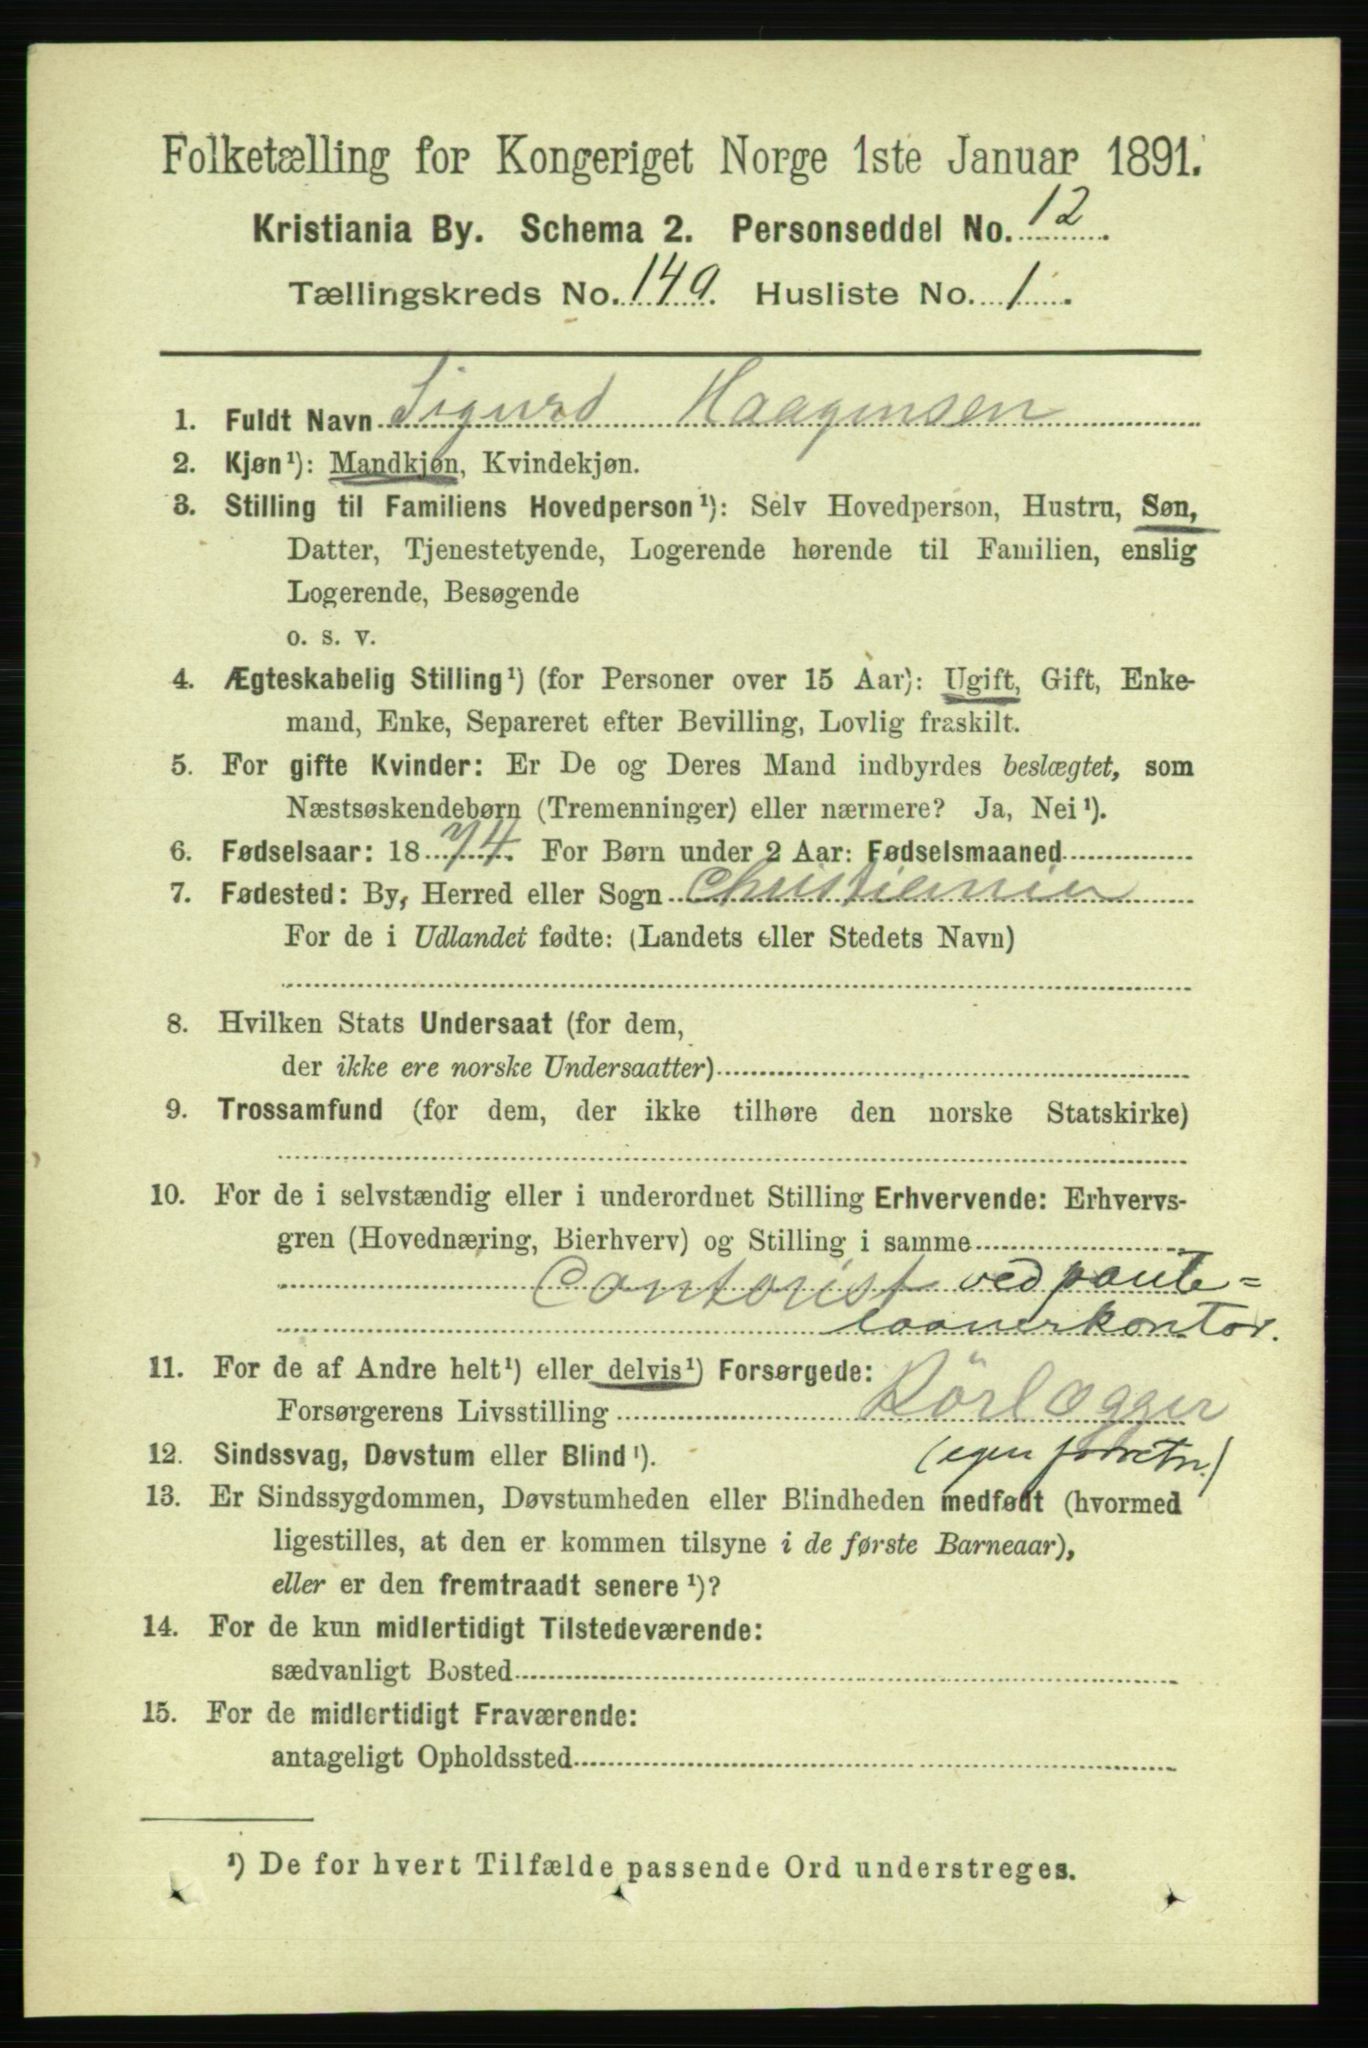 Folketælling for Kongeriget Norge 1ste Januar 1891.
Kristiania By. Schema 2. Personseddel No. 12.
Tællingskreds No. 149. Husliste No. 1.
1. Fuldt Navn Sigurd Haagensen
2. Kjøn¹): Mandkjøn, Kvindekjøn.
3. Stilling til Familiens Hovedperson¹): Selv Hovedperson, Hustru, Søn,
Datter, Tjenestetyende, Logerende hørende til Familien, enslig
Logerende, Besøgende
o. s. v.
4. Ægteskabelig Stilling¹) (for Personer over 15 Aar): Ugift, Gift, Enke-
mand, Enke, Separeret efter Bevilling, Lovlig fraskilt.
5. For gifte Kvinder: Er De og Deres Mand indbyrdes beslægtet, som
Næstsøskendebørn (Tremenninger) eller nærmere? Ja, Nei¹).
6. Fødselsaar: 1874. For Børn under 2 Aar: Fødselsmaaned
7. Fødested: By, Herred eller Sogn Christiania
For de i Udlandet fødte: (Landets eller Stedets Navn)
8. Hvilken Stats Undersaat (for dem,
der ikke ere norske Undersaatter)
9. Trossamfund (for dem, der ikke tilhøre den norske Statskirke)
10. For de i selvstændig eller i underordnet Stilling Erhvervende: Erhvervs-
gren (Hovednæring, Bierhverv) og Stilling i samme
Contorist ved pante=
laanerkontor.
11. For de af Andre helt¹) eller delvis¹) Forsørgede:
Forsørgerens Livsstilling Rörlægger
12. Sindssvag, Døvstum eller Blind¹). (egen forretn.)
13. Er Sindssygdommen, Døvstumheden eller Blindheden medfødt (hvormed
ligestilles, at den er kommen tilsyne i de første Barneaar),
eller er den fremtraadt senere¹)?
14. For de kun midlertidigt Tilstedeværende:
sædvanligt Bosted
15. For de midlertidigt Fraværende:
antageligt Opholdssted
¹) De for hvert Tilfælde passende Ord understreges.